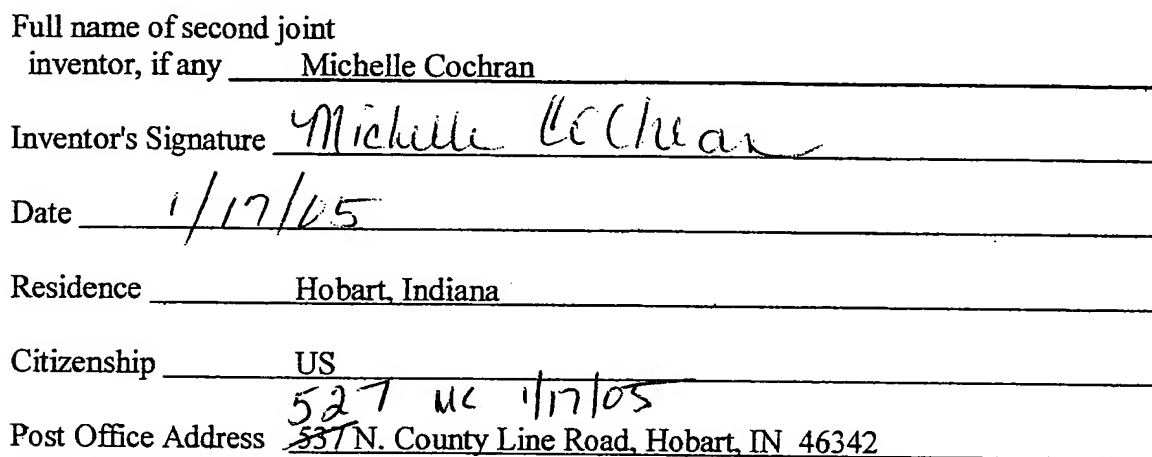 Full name of second joint
inventor, if any Michelle Cochran
Inventor's Signature Michelle Cochran
Date 1/17/05
Residence Hobart, Indiana
Citizenship US
527 MC 1/17/05
Post Office Address 537 N. County Line Road, Hobart, IN 46342